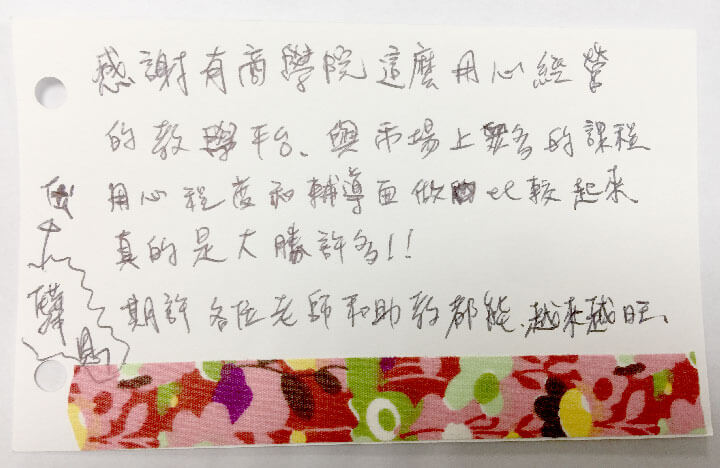 感謝有商學院這麼用心經營
的教學平台、與市場上眾多的課程
用心程度和輔導面做比較起來
真的是大勝許多!!
期許各位老師和助教都能、越來越旺、